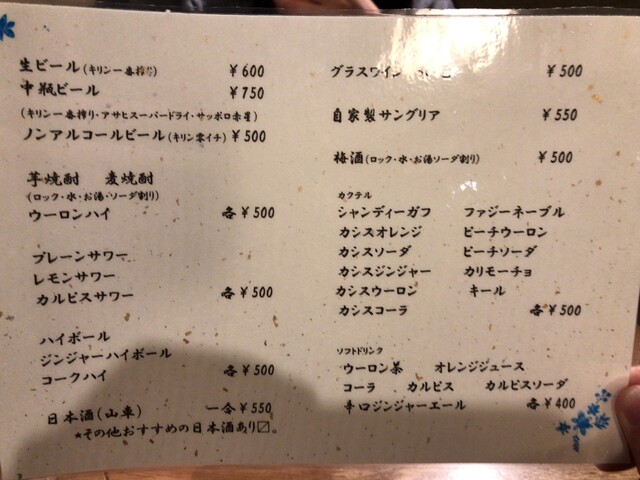 生ビール(キリン一番搾り) ¥600
中瓶ビール ¥750
(キリン一番搾り・アサヒスーパードライ・サッポロ赤星)
ノンアルコールビール(キリン零イチ) ¥500
芋焼酎 麦焼酎
(ロック・水・お湯・ソーダ割り)
ウーロンハイ 各¥500
プレーンサワー
レモンサワー
カルピスサワー 各¥500
ハイボール
ジンジャーハイボール
コークハイ 各¥500
日本酒(山車) 一合¥550
★その他おすすめの日本酒あり〼。
グラスワイン ¥500
自家製サングリア ¥550
梅酒(ロック・水・お湯ソーダ割り) ¥500
カクテル
シャンディーガフ ファジーネーブル
カシスオレンジ ピーチウーロン
カシスソーダ ピーチソーダ
カシスジンジャー カリモーチョ
カシスウーロン キール
カシスコーラ 各¥500
ソフトドリンク
ウーロン茶 オレンジジュース
コーラ カルピス カルピスソーダ
辛口ジンジャーエール 各¥400